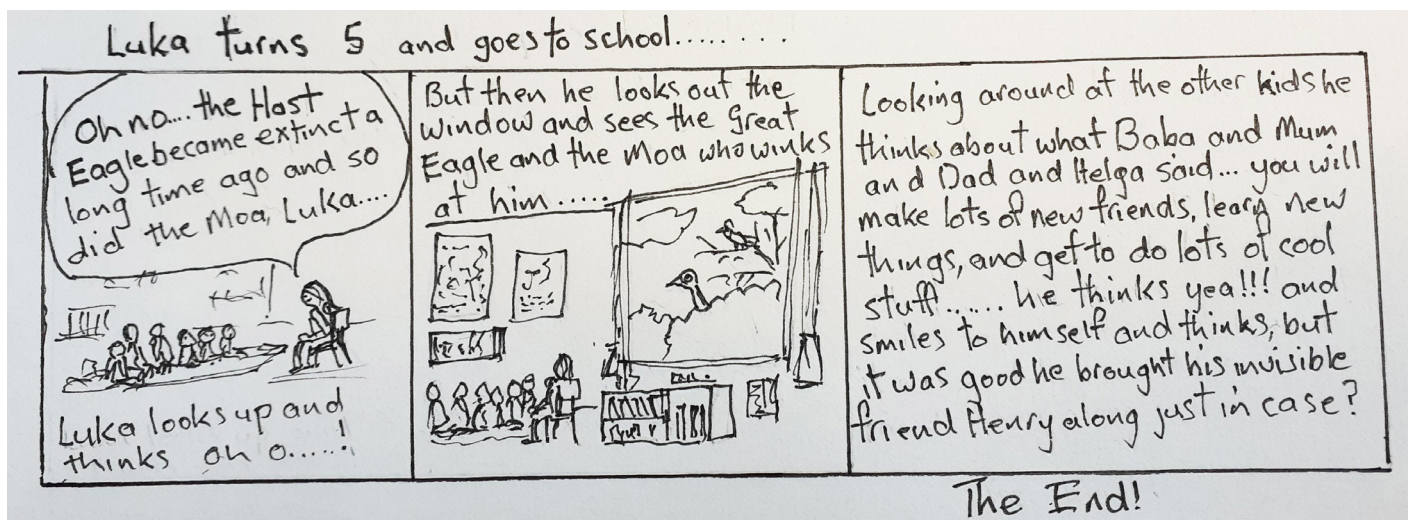 Luka turns 5 and goes to school........
Oh no....the Hast
Eagle became extinct a
long time ago and so
did the Moa, Luka....
Luka looks up and
thinks oh o.....!
But then he looks out the
window and sees the Great
Eagle and the Moa who winks
at him.....
Looking around at the other kids he
thinks about what Baba and Mum
and Dad and Helga said... you will
make lots of new friends, learn new
things, and get to do lots of cool
stuff....... he thinks yea!!! and
smiles to himself and thinks, but
it was good he brought his invisible
friend Henry along just in case?
The End!